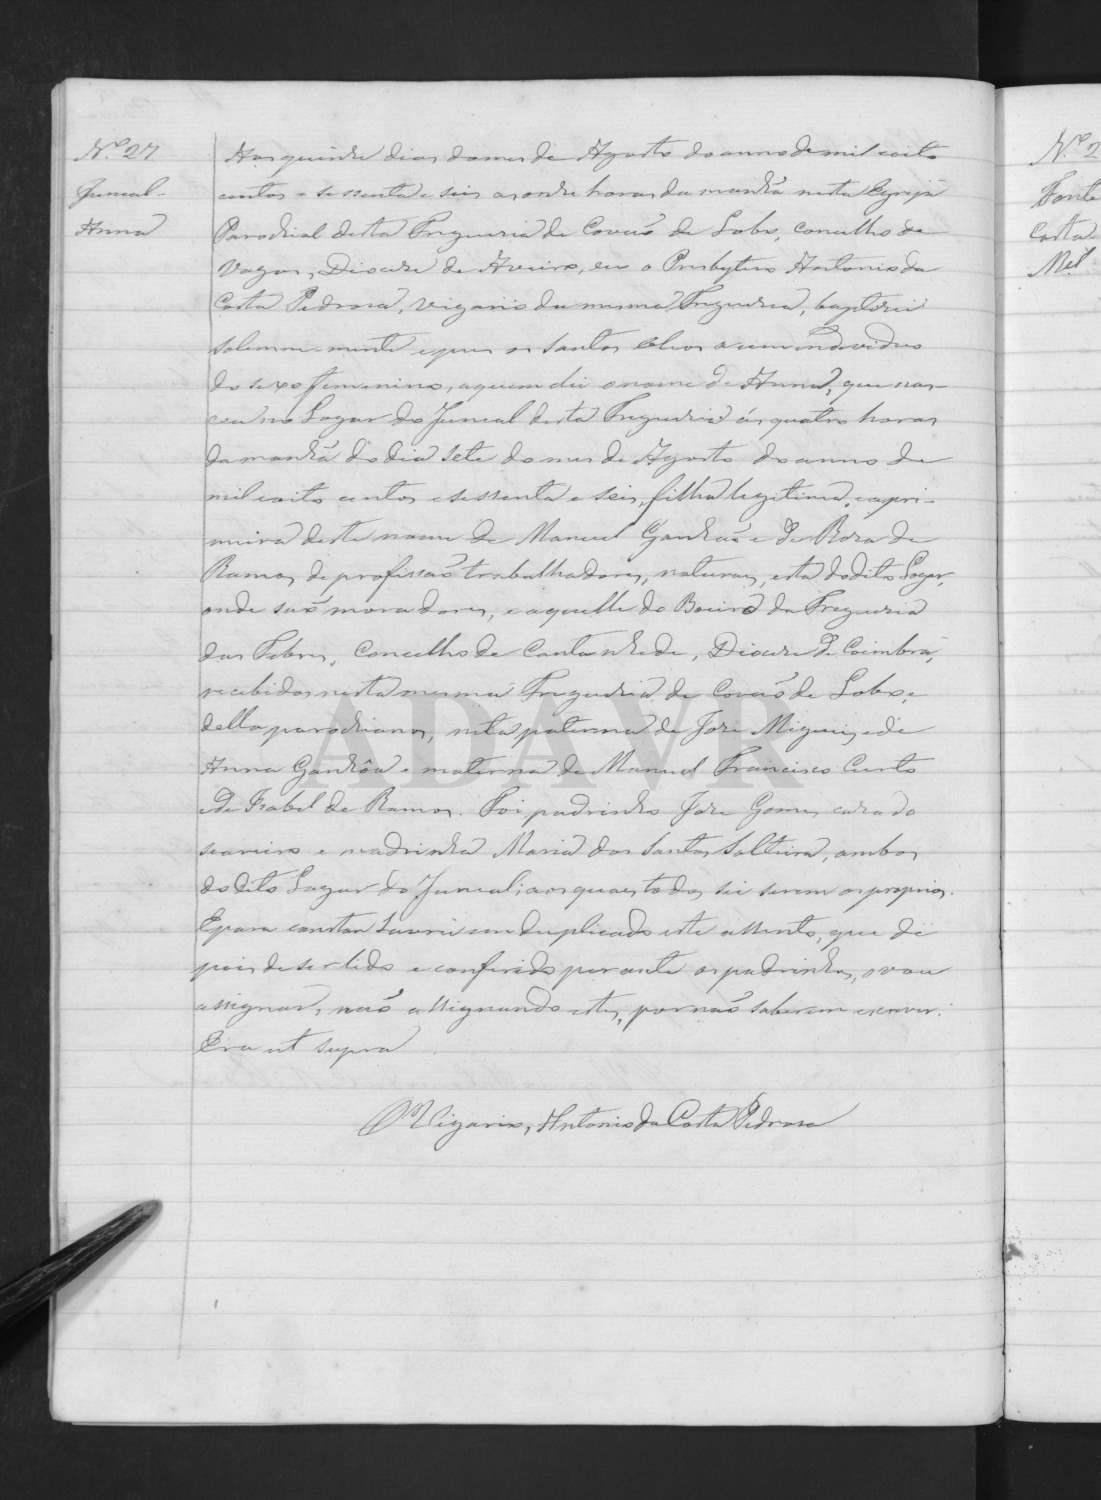 Nº 27
Juncal -
Anna
Aos quinze dias do mes de Agosto do anno de mil oito
centos e sessenta e seis as onze horas da manhã nesta Egreja
Parochial desta Freguezia de Covão de Lobo, concelho de
Vagos, Diocese de Aveiro, eu o Presbytero Antonio da
Costa Pedrosa, vigario da mesma Freguezia, baptizei
solemne-mente e puz os santos oleos a um individuo
do sexo femenino, a quem dei o nome de Anna, que nas-
ceu no Lugar do Juncal desta Freguezia ás quatro horas
da manhã do dia sete do mes de Agosto do anno de
mil oito centos e sessenta e seis, filha legitima, e a pri-
meira deste nome de Manuel Ganhão e de Roza de
Ramos, de profissão trabalhadores, naturaes, esta do dito Logar,
onde são moradores, e aquelle do Boeiro da Freguezia
das Febres, Concelho de Cantanhede, Diocese de Coimbra,
recebidos nesta mesma Freguezia de Covão de Lobo, e
della parochianos, neta paterna de Joze Migueis e de
Anna Ganhôa e materna de Manuel Francisco Curto
e de Izabel de Ramos. Foi padrinho Joze Gomes cazado
seareiro e madrinha Maria dos Santos Solteira, ambos
do dito Lugar do Juncal; aos quaes todos sei serem os proprios.
E para constar lavrei em duplicado este assento, que de
pois de ser lido e conferido perante os padrinhos, o vou
assignar, não assignando estes, por não saberem escrever.
Era ut supra
O Vigario, Antonio da Costa Pedrosa
Nº 2
Fonte
Costa
Mel
ADAVR